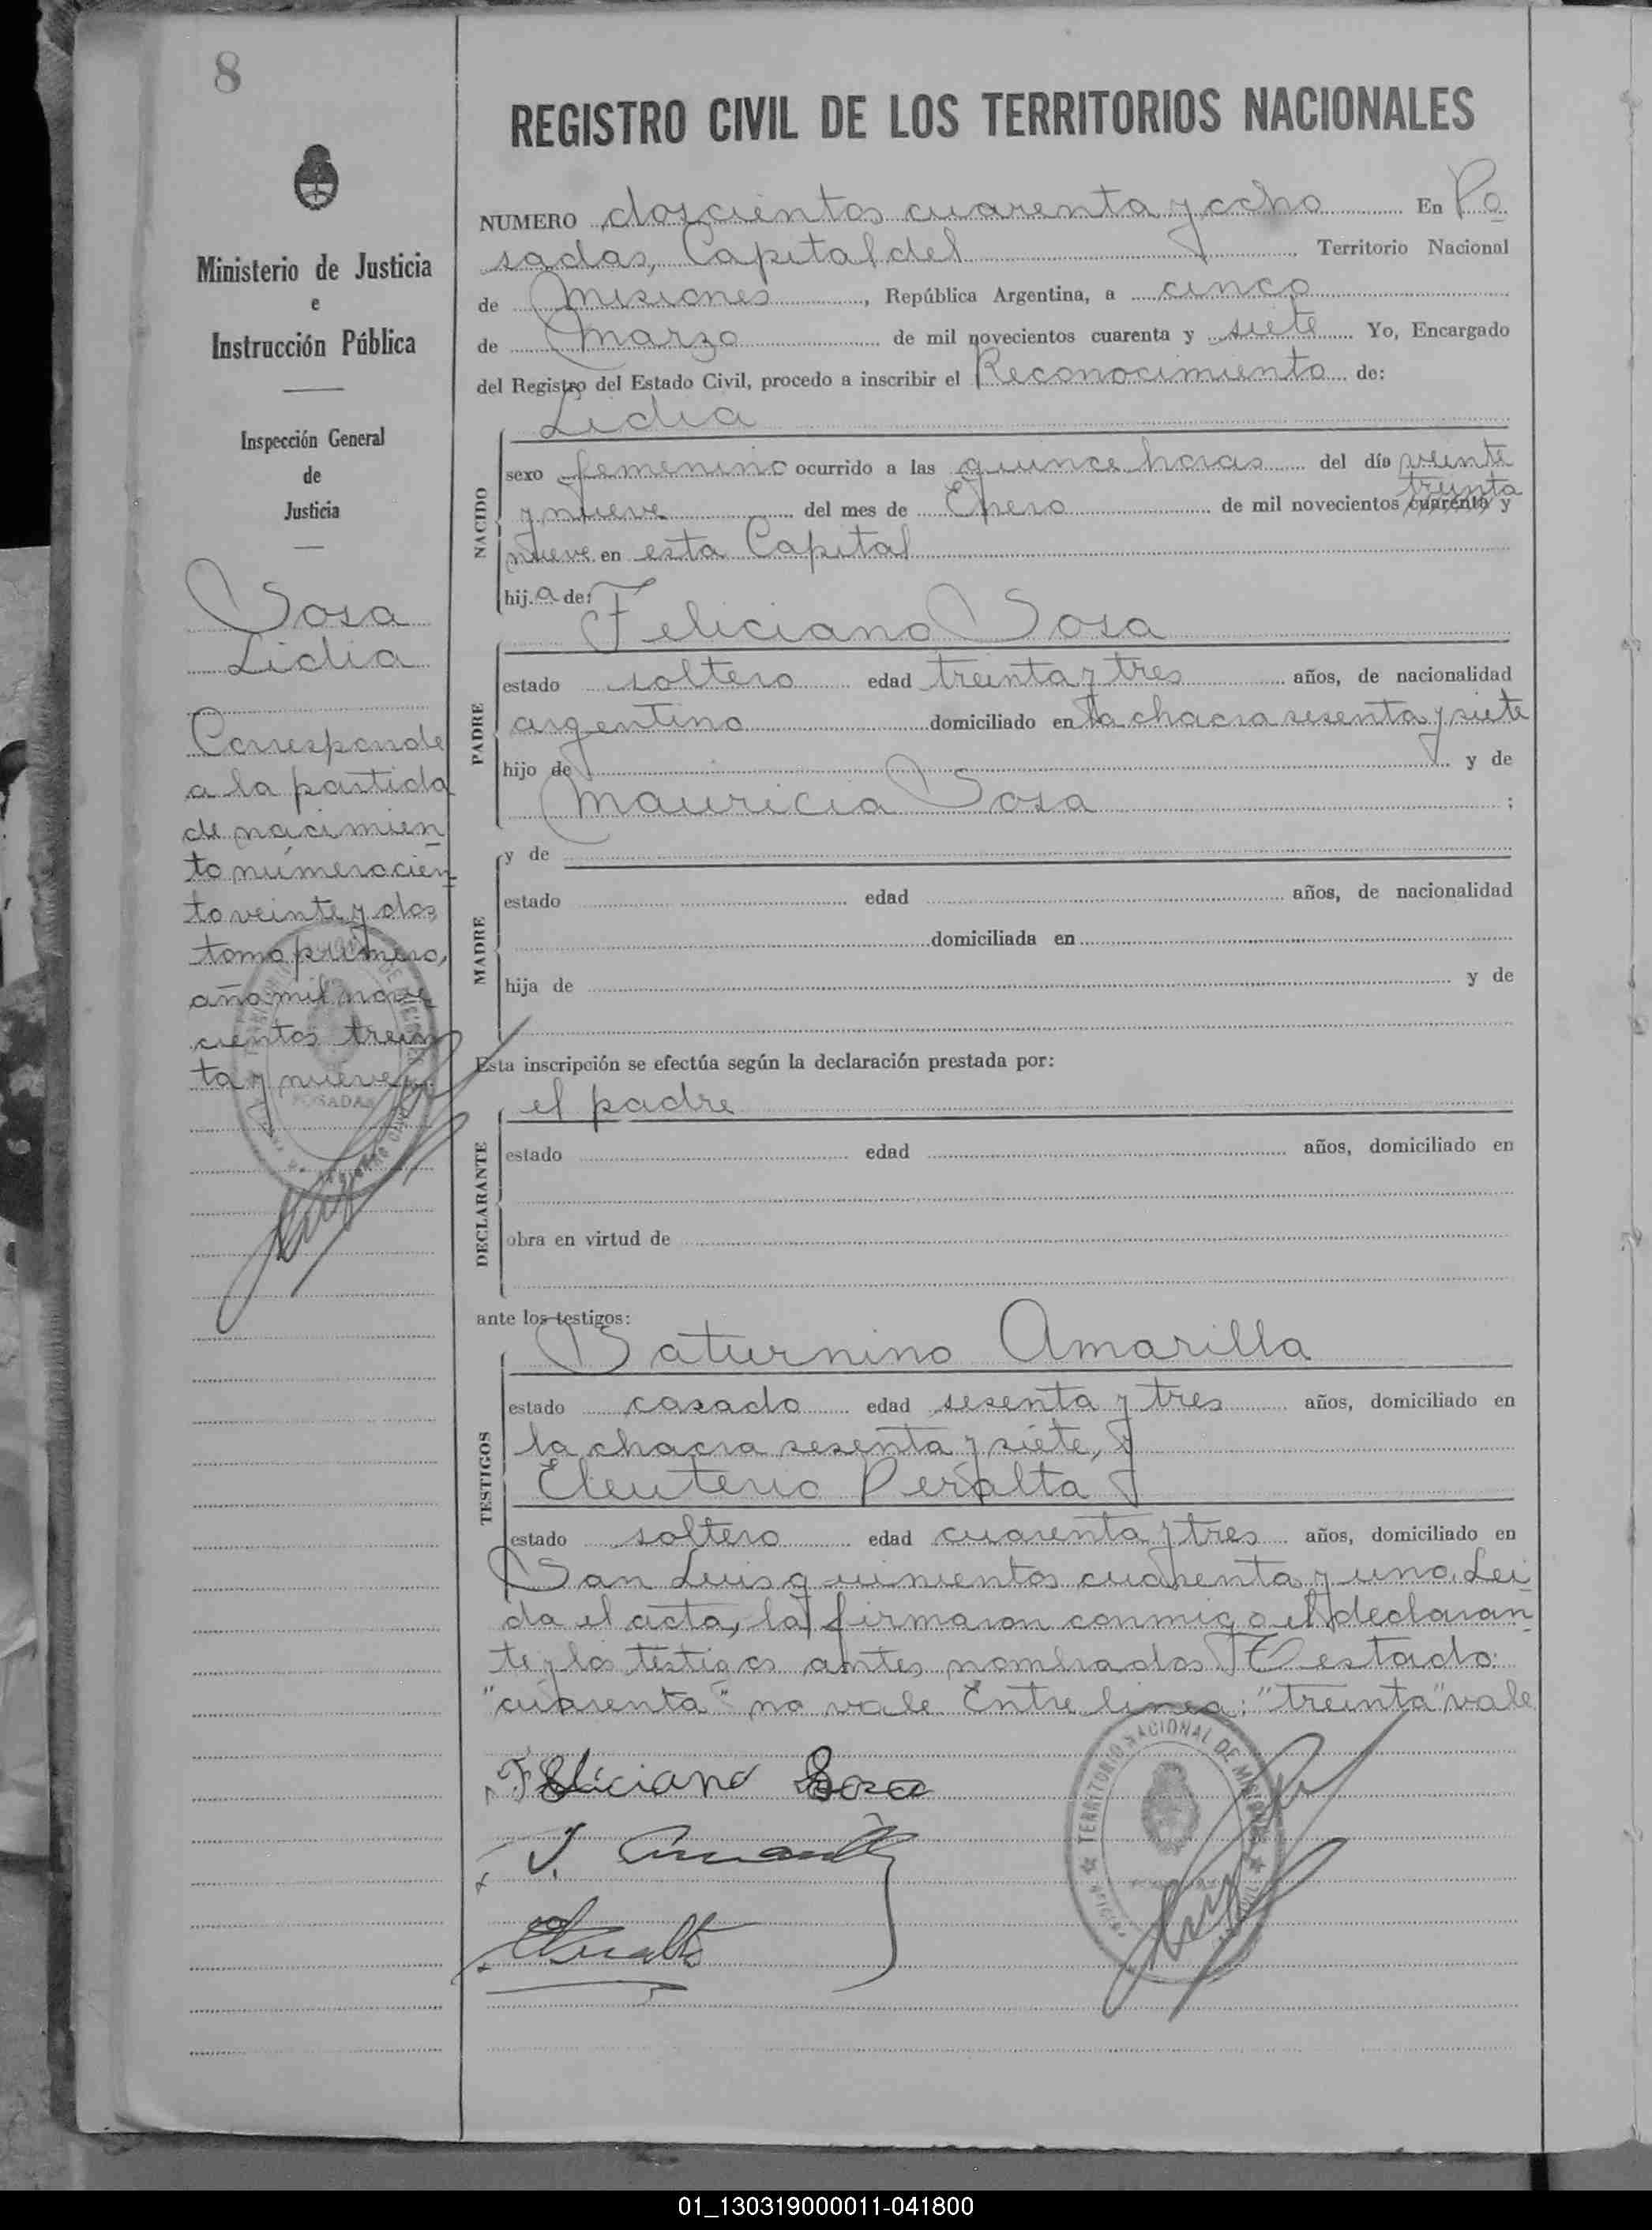 8
Ministerio de Justicia
e
Instrucción Pública
Inspección General
de
Justicia
Sosa
Lidia
Corresponde
a la partida
de nacimien
to número cien
to veinte y dos
tomo primero,
año mil nove
cientos trein
ta y nueve.
POSADAS
REGISTRO CIVIL DE LOS TERRITORIOS NACIONALES
NUMERO doscientos cuarenta y ocho En Po
sadas, Capital del Territorio Nacional
de Misiones, República Argentina, a cinco
de Marzo de mil novecientos cuarenta y siete Yo, Encargado
del Registro del Estado Civil, procedo a inscribir el Reconocimiento de:
Lidia
NACIDO
sexo femenino ocurrido a las quince horas del día veinte
treinta
y nueve del mes de Enero de mil novecientos cuarenta y
nueve en esta Capital
hij.a de:
Feliciano Sosa
PADRE
estado soltero edad treinta y tres años, de nacionalidad
argentino domiciliado en la chacra sesenta y siete
hijo de y de
Mauricia Sosa ;
MADRE
y de
estado edad años, de nacionalidad
domiciliada en
hija de y de
Esta inscripción se efectúa según la declaración prestada por:
el padre
DECLARANTE
estado edad años, domiciliado en
obra en virtud de
ante los testigos:
Saturnino Amarilla
TESTIGOS
estado casado edad sesenta y tres años, domiciliado en
la chacra sesenta y siete, y
Eleuterio Peralta
estado soltero edad cuarenta y tres años, domiciliado en
San Luis quinientos cuarenta y uno. Lei
da el acta, la firmaron conmigo el declaran
te y los testigos antes nombrados. Testado:
"cuarenta" no vale Entre linea: "treinta" vale
Feliciano Sosa
TERRITORIO NACIONAL DE MISIONES
01_130319000011-041800